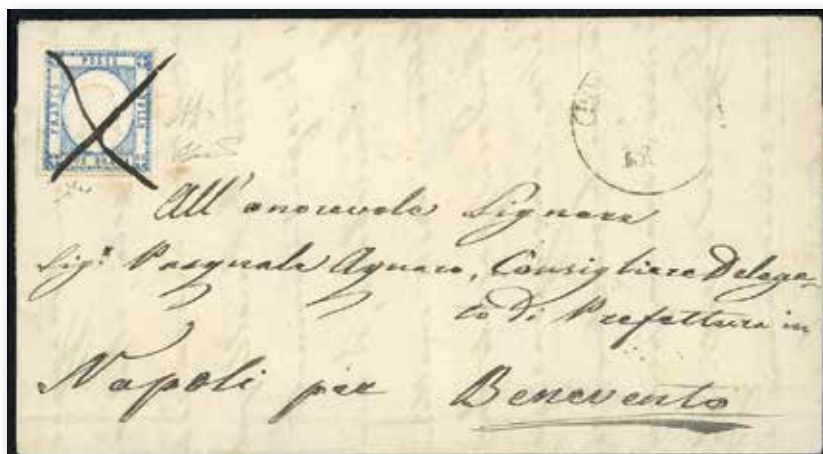 POSTE
FRANCO
All' onorevole Signore
Sig.r Pasquale Agnaro, Consigliere Delega-
to di Prefettura in
Napoli per Benevento